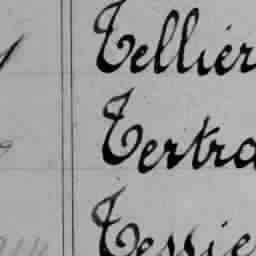 Tellier
Tertra
Tessie